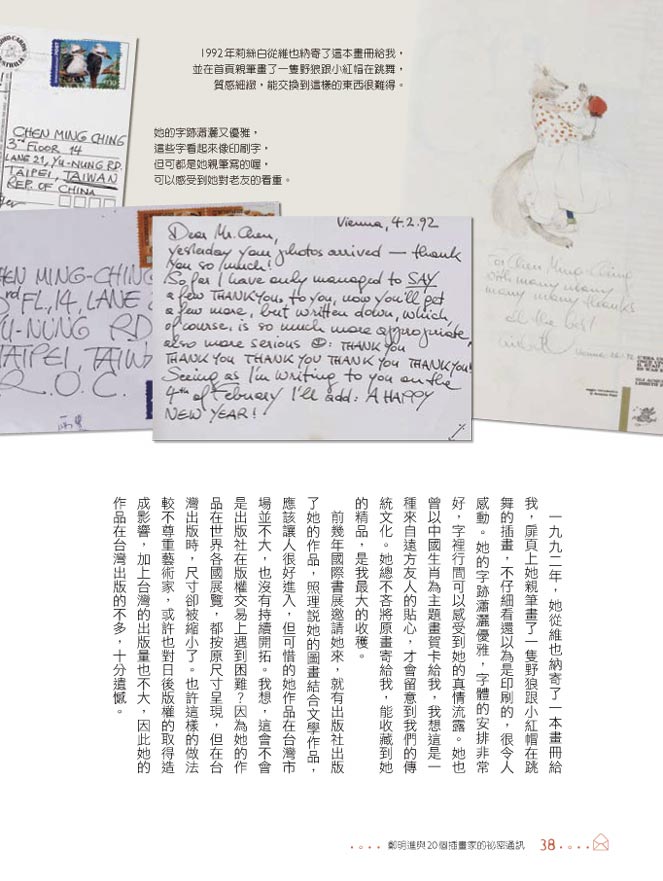 1992年莉絲白從維也納寄了這本畫冊給我，
並在首頁親筆畫了一隻野狼跟小紅帽在跳舞，
質感細緻，能交換到這樣的東西很難得。
她的字跡瀟灑又優雅，
這些字看起來像印刷字，
但可都是她親筆寫的喔，
可以感受到她對老友的看重。
CHEN MING CHING
3RD FLOOR 14
LANE 21, YU-NUNG RD.
TAIPEI, TAIWAN
REP. OF CHINA
HEN MING-CHING
rd FL, 14, LANE
YU-NUNG RD
TAIPEI, TAIW
R.O.C.
Vienna, 4.2.92
Dear Mr. Chen,
yesterday your photos arrived — thank
You so much!
So far I have only managed to SAY
a few THANKYOU, to you, now you'll get
a few more, but written down, which,
of course, is so much more appropriate,
also more serious ☺: THANK YOU
THANK YOU THANK YOU THANK YOU THANK YOU!
Seeing as I'm writing to you on the
4th of February I'll add: A HAPPY
NEW YEAR!
For Chen Ming-Ching
with many many
many many thanks
all the best
一九九二年，她從維也納寄了一本畫冊給
我，扉頁上她親筆畫了一隻野狼跟小紅帽在跳
舞的插畫，不仔細看還以為是印刷的，很令人
感動。她的字跡瀟灑優雅，字體的安排非常
好，字裡行間可以感受到她的真情流露。她也
曾以中國生肖為主題畫賀卡給我，我想這是一
種來自遠方友人的貼心，才會留意到我們的傳
統文化。她總不吝將原畫寄給我，能收藏到她
的精品，是我最大的收穫。
前幾年國際書展邀請她來，就有出版社出版
了她的作品，照理說她的圖畫結合文學作品，
應該讓人很好進入，但可惜的她作品在台灣市
場並不大，也沒有持續開拓。我想，這會不會
是出版社在版權交易上遇到困難？因為她的作
品在世界各國展覽，都按原尺寸呈現，但在台
灣出版時，尺寸卻被縮小了。也許這樣的做法
較不尊重藝術家，或許也對日後版權的取得造
成影響，加上台灣的出版量也不大，因此她的
作品在台灣出版的不多，十分遺憾。
鄭明進與20個插畫家的祕密通訊 38